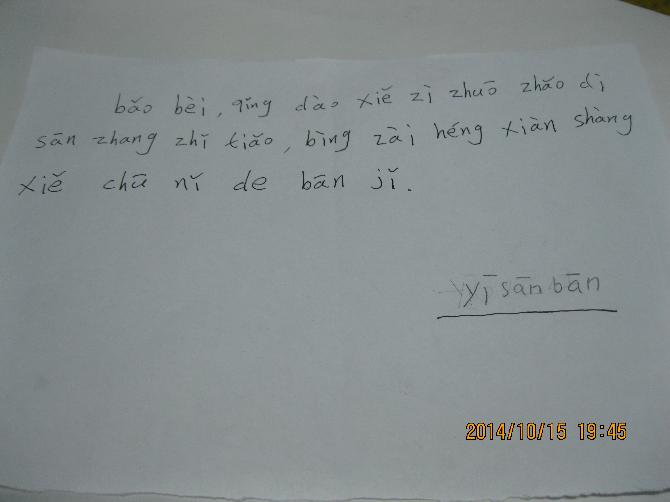 bǎo bèi, qǐng dào xiě zì zhuō zhǎo dì
sān zhang zhǐ tiǎo, bìng zài héng xiàn shàng
xiě chū nǐ de bān jǐ.
yī sān bān
2014/10/15 19:45